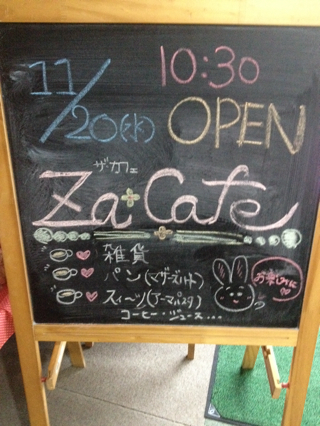 10:30
11/20(水) OPEN
ザ・カフェ
Za Cafe
雑貨
パン(マザーズハート)
スイーツ(アーマパスタ)
コーヒー・ジュース...
お楽しみに